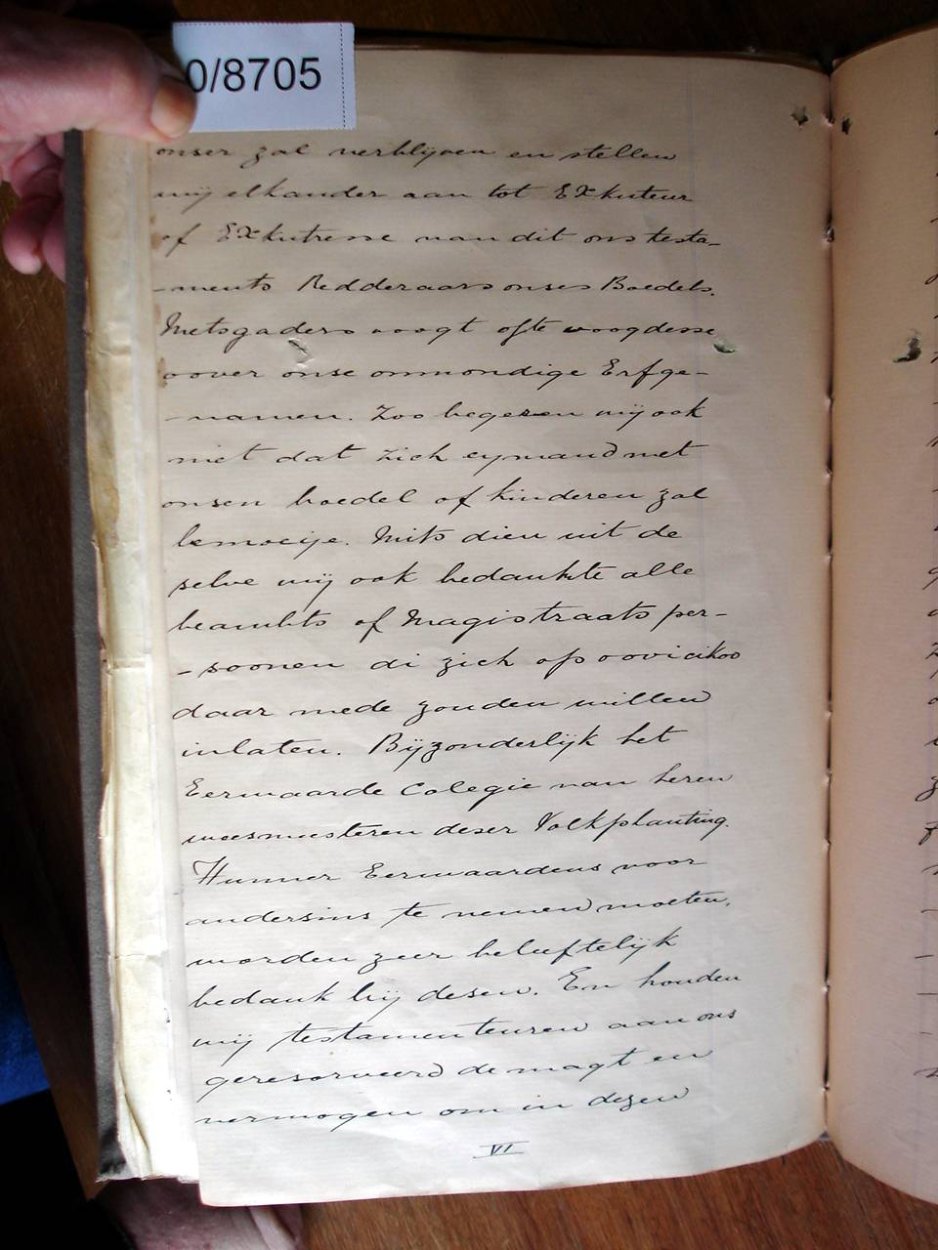 0/8705
onser zal verblijven en stellen
wij elkander aan tot EXkuteur
of EXkutresse van dit ons testa-
-ments Redderaars onses Boedels.
Metsgaders voogt ofte voogdesse
over onse onmondige Erfge-
-namen. Zoo begeren wij ook
niet dat zich eymand met
onsen boedel of kinderen zal
bemoeije. Mits dien uit de
selve wij ook bedankte alle
beambts of Magistraats per-
-soonen di zich op
daar mede zouden willen
inlaten. Bijzonderlijk het
Eerwaarde Colegie van heren
weesmeesteren deser Volkplanting.
Hunner Eerwaardens voor
andersins te nemen moeten,
worden zeer beleeftelijk
bedank bij desen. En houden
wij testamenteuren aan ons
geresorveerd de magt en
vermogen om in dezen
VI